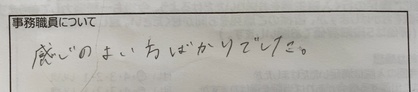 事務職員について
感じのよい方ばかりでした。